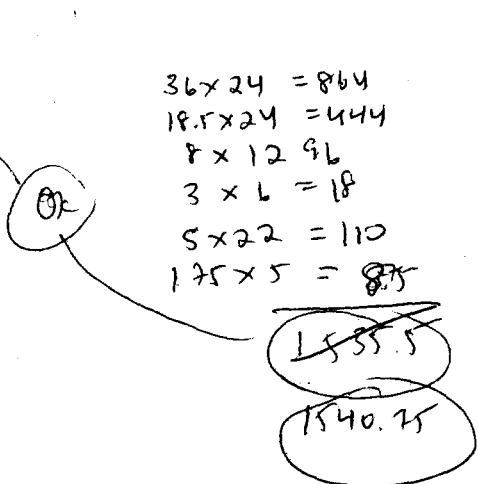 36x24 = 864
18.5x24 = 444
8 x 12 96
3 x 6 = 18
OK
5x22 = 110
1.75x5 = 8.75
1535.5
1540.75